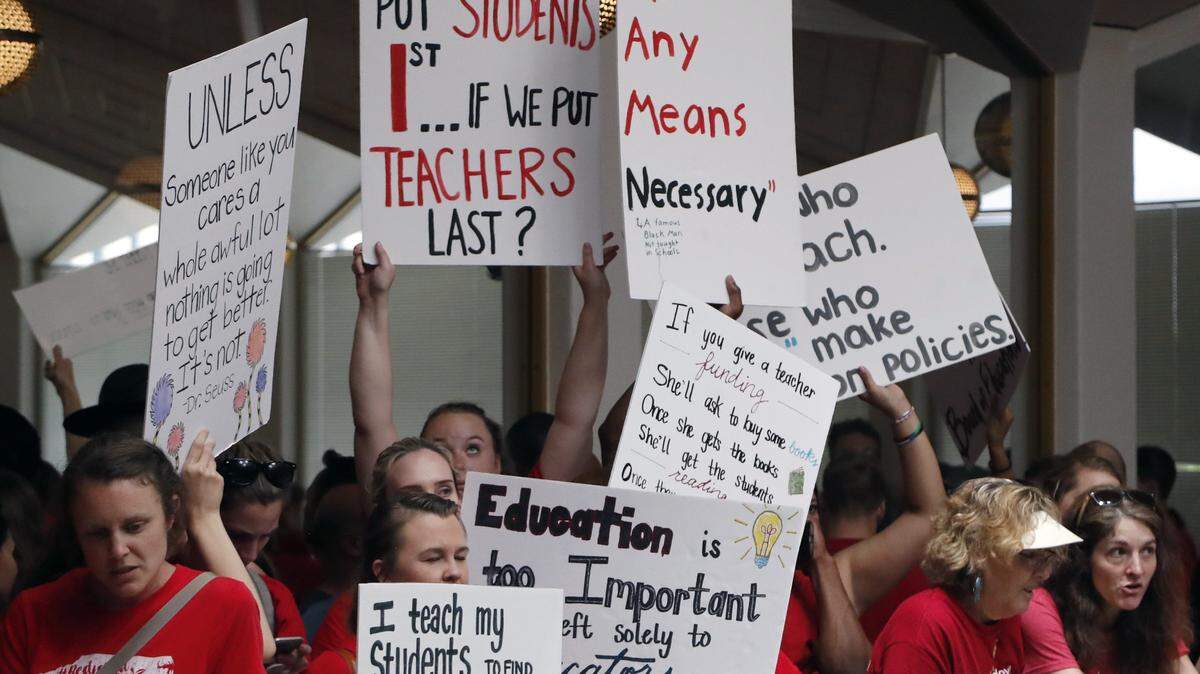 UNLESS
Someone like you
cares a
whole awful lot
nothing is going
to get better.
It's not.
-Dr. Seuss
PUT STUDENTS
1ST
...IF WE PUT
TEACHERS
LAST?
Any
Means
Necessary"
A famous
Black Man
Not taught
in Schools
who
ach.
se who
make
policies.
If you give a teacher
funding
She'll ask to buy some books
Once she gets the books
She'll get the students
reading
Once
Education is
too Important
eft solely to
I teach my
Students TO FIND